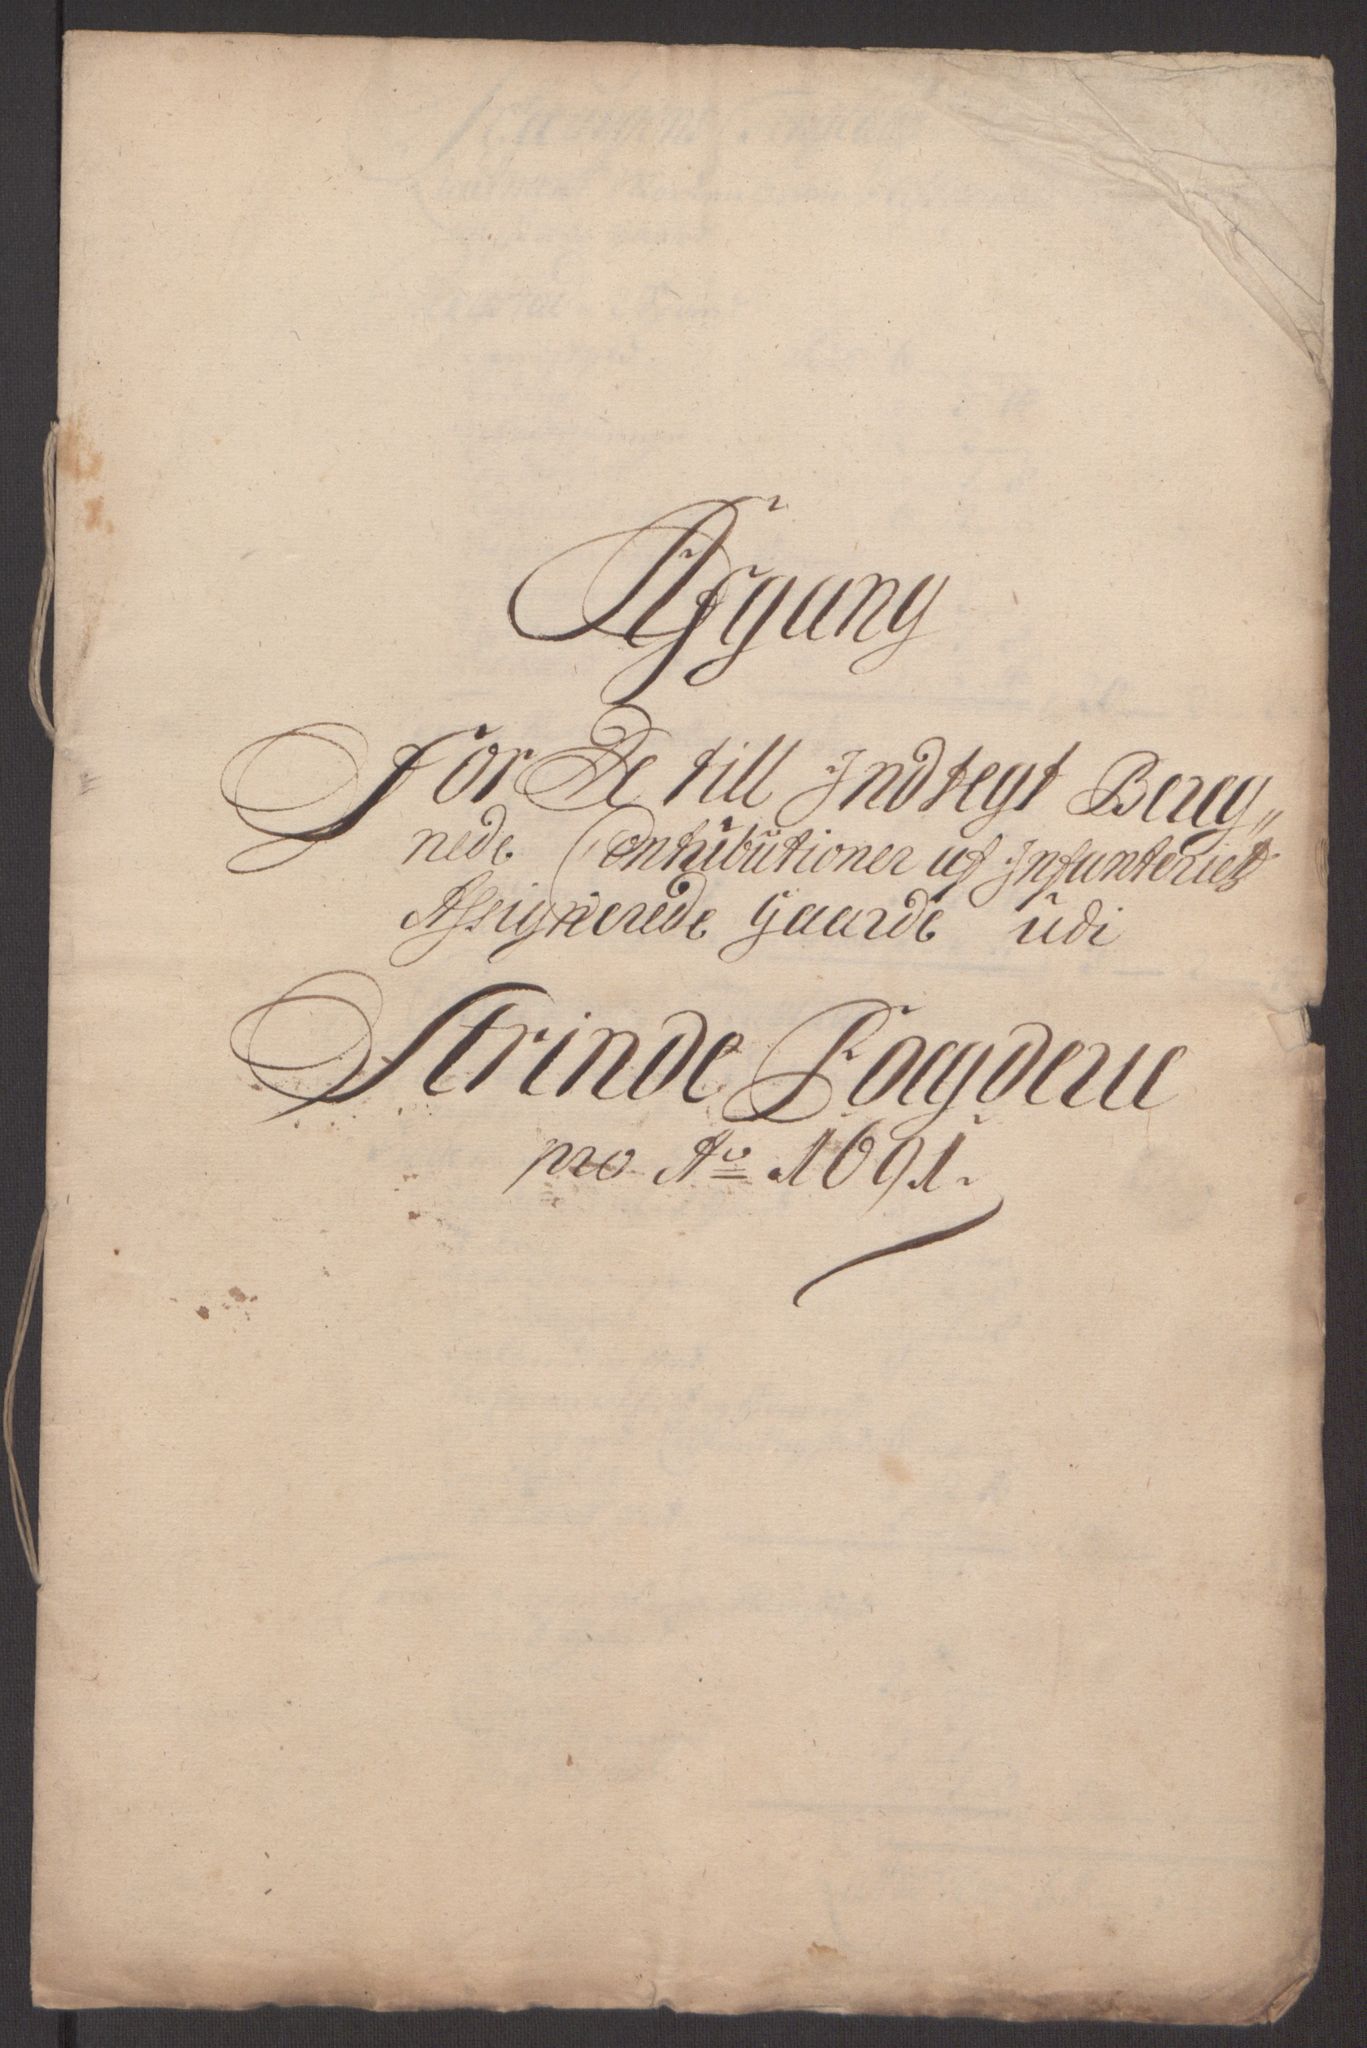 Afgang
For De till Indtegt Bereg„
nede Contributioner af Infanteriets
Assignerede Gaarde udi
Strinde Fogderie
pro Ao 1691.